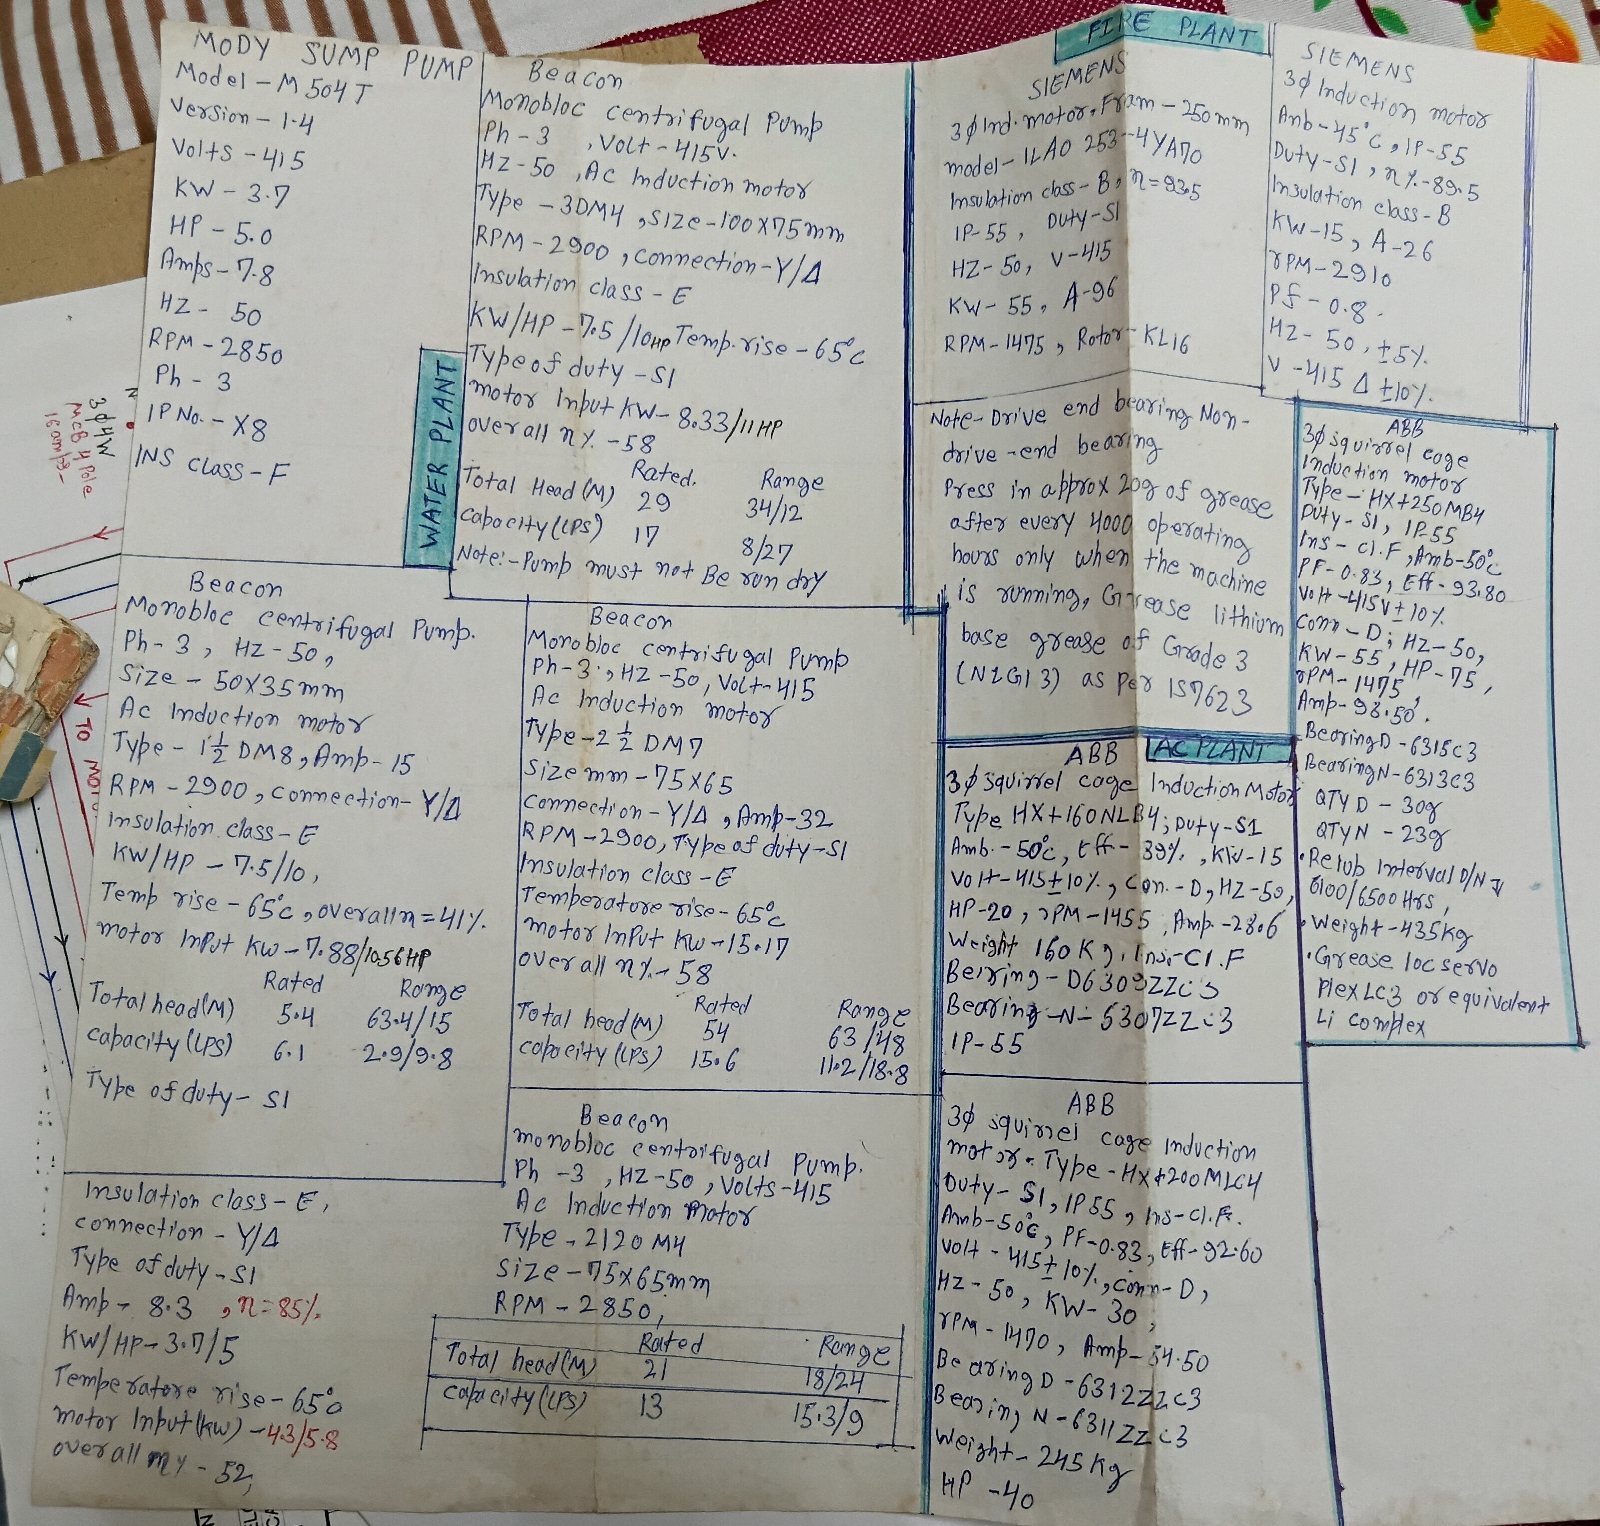 MODY SUMP PUMP
Model - M 504 T
Version - 1.4
Volts - 415
KW - 3.7
HP - 5.0
Amps - 7.8
HZ - 50
RPM - 2850
Ph - 3
IP No. - X8
INS class - F
WATER PLANT
Beacon
Monobloc centrifugal Pump
Ph - 3 , Volt - 415V.
HZ - 50 , Ac Induction motor
Type - 3DM4 , Size - 100X75mm
RPM - 2900 , connection - Y/Δ
Insulation class - E
KW/HP - 7.5 / 10HP Temp. rise - 65°c
Type of duty - S1
motor Input KW - 8.33/11 HP
overall η % - 58
Rated. Range
Total Head (M) 29 34/12
capacity (LPS) 17 8/27
Note:- Pump must not Be run dry
Beacon
Monobloc centrifugal Pump.
Ph - 3 , HZ - 50,
Size - 50X35mm
Ac Induction motor
Type - 1½ DM8, Amp - 15
RPM - 2900, connection - Y/Δ
Insulation class - E
KW/HP - 7.5/10,
Temp rise - 65°c , overall η = 41%.
motor InPut KW - 7.88/10.56 HP
Rated Range
Total head (M) 5.4 63.4/15
capacity (LPS) 6.1 2.9/9.8
Type of duty - S1
Beacon
Monobloc centrifugal Pump
Ph - 3 , HZ - 50, Volt - 415
Ac Induction motor
Type - 2½ DM7
Size mm - 75X65
Connection - Y/Δ , Amp - 32
RPM - 2900, Type of duty - S1
Insulation class - E
Temperature rise - 65°c
motor InPut KW - 15.17
over all η % - 58
Rated Range
Total head (M) 54 63/48
capacity (LPS) 15.6 11.2/18.8
Beacon
monobloc centrifugal Pump.
Ph - 3 , HZ - 50 , Volts - 415
Ac Induction motor
Type - 2120 M4
Size - 75X65mm
RPM - 2850,
Rated Range
Total head (M) 21 18/24
capacity (LPS) 13 15.3/9
Insulation class - E,
connection - Y/Δ
Type of duty - S1
Amp - 8.3 , η = 85%.
KW/HP - 3.7/5
Temperature rise - 65°
motor Input (kw) - 4.3/5.8
over all η % - 52,
FIRE PLANT
SIEMENS
3ϕ Ind. motor, Fram - 250mm
model - 1LAO 253-4YA70
Insulation class - B, η = 93.5
IP - 55 , Duty - S1
HZ - 50, V - 415
KW - 55, A - 96
RPM - 1475 , Rotor - KL16
SIEMENS
3ϕ Induction motor
Amb - 45°c , IP - 55
Duty - S1 , η % - 89.5
Insulation class - B
KW - 15, A - 26
rPM - 2910
Pf - 0.8.
HZ - 50, ±5%.
V - 415 Δ ±10%.
Note - Drive end bearing Non-
drive - end bearing
Press in approx 20g of grease
after every 4000 operating
hours only when the machine
is running, Grease lithium
base grease of Grade 3
(NLGI 3) as per IS7623
AC PLANT
ABB
3ϕ squirrel cage Induction Motor
Type HX+160NLB4; Duty - S1
Amb. - 50°c, Eff - 89%. , KW - 15
Volt - 415±10%. , Con. - D, HZ - 50,
HP - 20 , rPM - 1455, Amp. - 28.6
Weight 160 Kg, Ins - Cl. F
Beiring - D6309ZZC3
Bearing - N - 6307ZZC3
IP - 55
ABB
3ϕ squirrel cage Induction
motor. Type - HX+200MLC4
Duty - S1, IP55 , Ins - cl. F.
Amb - 50°c, PF - 0.83, Eff - 92.60
Volt - 415±10%., Conn - D,
HZ - 50, KW - 30,
rPM - 1470, Amp - 54.50
Bearing D - 6312ZZC3
Bearing N - 6311ZZC3
Weight - 245 Kg
HP - 40
ABB
3ϕ squirrel cage
Induction motor
Type - HX+250MB4
Duty - S1, IP-55
Ins - cl. F , Amb - 50°c
PF - 0.83, Eff - 93.80
Volt - 415V±10%.
Conn - D; HZ - 50,
KW - 55, HP - 75,
rPM - 1475
Amp - 98.50.
Bearing D - 6315C3
Bearing N - 6313C3
QTY D - 30g
QTY N - 23g
• Relub Interval D/N
6100/6500 Hrs,
• Weight - 435Kg
• Grease IOC Servo
Plex LC3 or equivalent
Li complex
3ϕ4W
MCB 4 Pole
16 amps -
TO MOTO